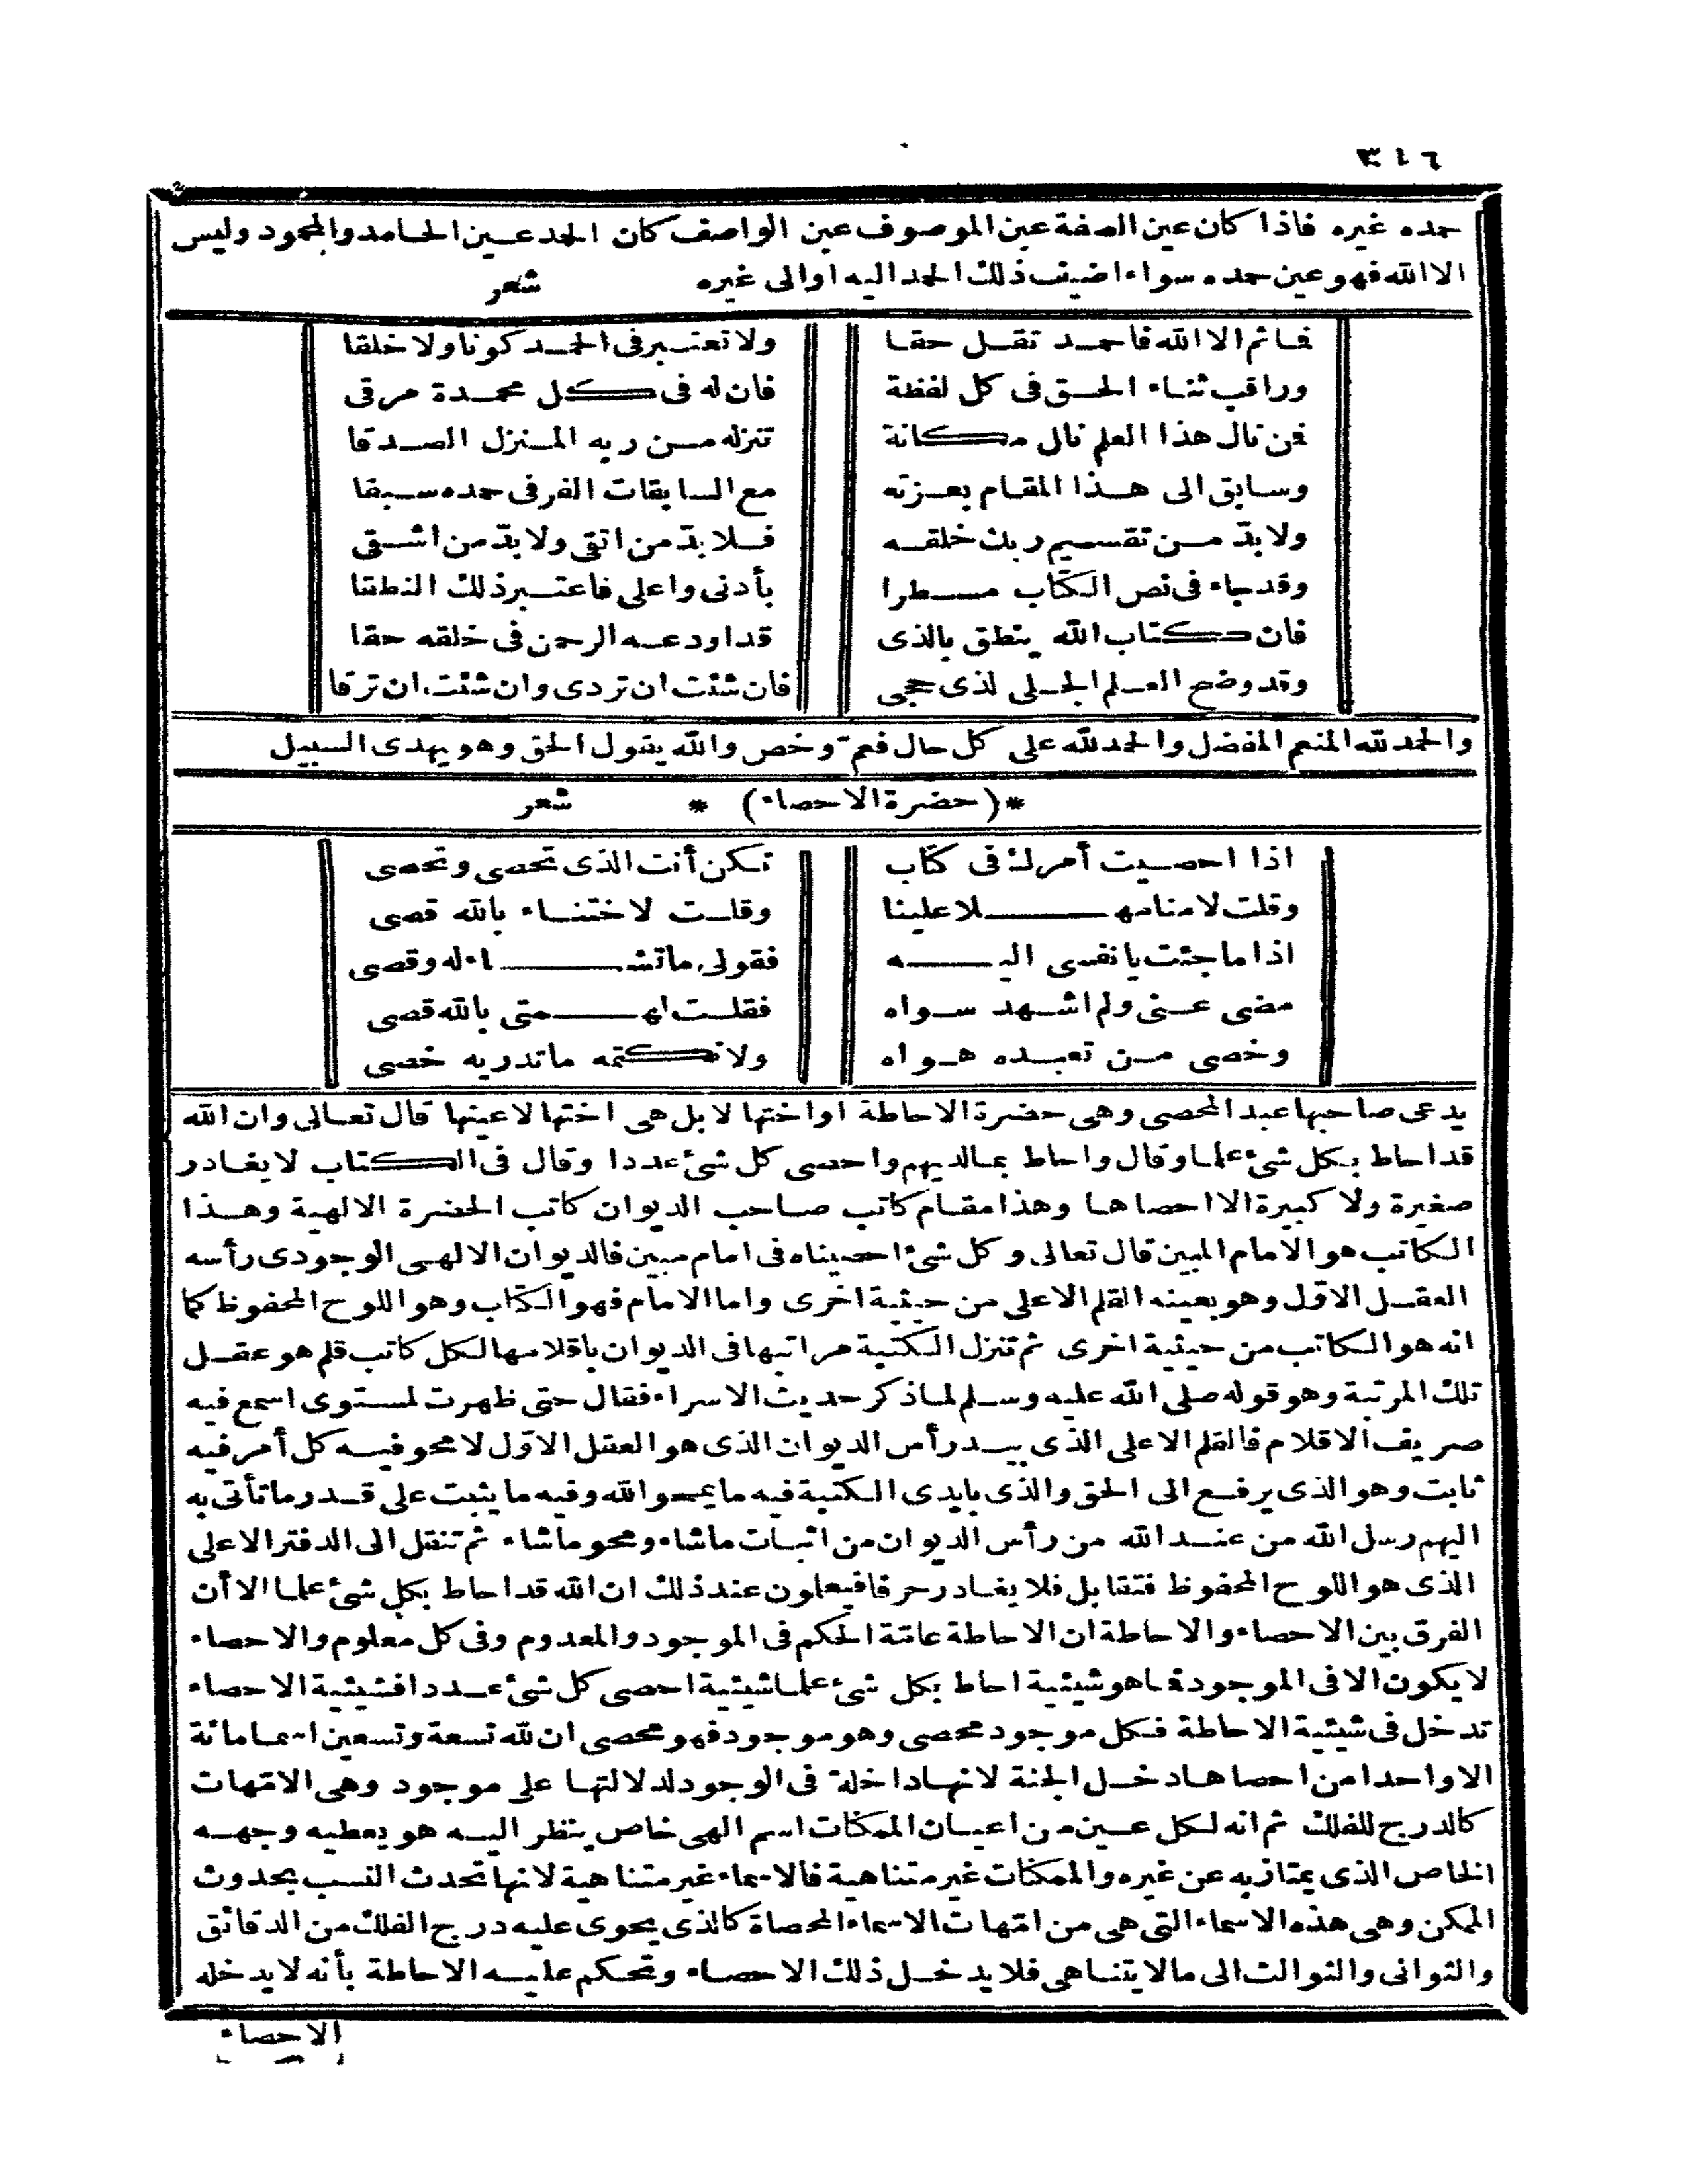 ٣١٦
حمده غيره فاذا كان عين الصفة عين الموصوف عين الواصف كان الحمد عين الحامد والمحمود وليس
الا الله فهو عين حمده سواء اضيف ذلك الحمد اليه اوالى غيره شعر
فما ثم الا الله فاحمد تقل حقا ولا تعتبر فى الحمد كونا ولا خلقا
وراقب ثناء الحق فى كل لفظة فان له فى كل محمدة مرقى
فمن نال هذا العلم نال مكانة تنزله من ربه المنزل الصدقا
وسابق الى هذا المقام بعزته مع السابقات الغر فى حمده سبقا
ولا بدّ من تقسيم ربك خلقه فلا بدّ من اتقى ولا بدّ من اشقى
وقد جاء فى نص الكتاب مسطرا بأدنى واعلى فاعتبر ذلك النطقا
فان كتاب الله ينطق بالذى قد اودعه الرحمن فى خلقه حقا
وقد وضح العلم الجلى لذى حجى فان شئت ان تردى وان شئت ان ترقا
والحمد لله المنعم المفضل والحمد لله على كل حال فعمّ وخص والله يقول الحق وهو يهدى السبيل
*(حضرة الاحصاء)* شعر
اذا احصيت أمرك فى كتاب تكن أنت الذى تحصى وتحصى
وقلت لامنا مهلا علينا وقلت لاختناء بالله قصى
اذا ما جئت يا نفسى اليه فقولى ما تشاء له وقصى
مضى عنى ولم اشهد سواه فقلت لهمتى بالله قصى
وخصى من تعبده هواه ولا تكتمه ما تدريه خصى
يدعى صاحبها عبد المحصى وهى حضرة الاحاطة او اختها لا بل هى اختها لا عينها قال تعالى وان الله
قد احاط بكل شئ علما وقال واحاط بما لديهم واحصى كل شئ عددا وقال فى الكتاب لا يغادر
صغيرة ولا كبيرة الا احصاها وهذا مقام كاتب صاحب الديوان كاتب الحضرة الالهية وهذا
الكاتب هو الامام المبين قال تعالى وكل شئ احصيناه فى امام مبين فالديوان الالهى الوجودى رأسه
العقل الاوّل وهو بعينه القلم الاعلى من حيثية اخرى واما الامام فهو الكتاب وهو اللوح المحفوظ كما
انه هو الكاتب من حيثية اخرى ثم تنزل الكتبة مراتبها فى الديوان باقلامها لكل كاتب قلم هو عقل
تلك المرتبة وهو قوله صلى الله عليه وسلم لما ذكر حديث الاسراء فقال حتى ظهرت لمستوى اسمع فيه
صريف الاقلام فالقلم الاعلى الذى بيد رأس الديوان الذى هو العقل الاوّل لا محو فيه كل أمر فيه
ثابت وهو الذى يرفع الى الحق والذى بايدى الكتبة فيه ما يمحو الله وفيه ما يثبت على قدر ما تأتى به
اليهم رسل الله من عند الله من رأس الديوان من اثبات ماشاء ومحو ماشاء ثم تنقل الى الدفتر الاعلى
الذى هو اللوح المحفوظ فتقابل فلا يغادر حرفا فيعلمون عند ذلك ان الله قد احاط بكل شئ علما الا أن
الفرق بين الاحصاء والاحاطة ان الاحاطة عامّة الحكم فى الموجود والمعدوم وفى كل معلوم والاحصاء
لا يكون الا فى الموجود فما هو شيئية احاط بكل شئ علما شيئية احصى كل شئ عددا فشيئية الاحصاء
تدخل فى شيئية الاحاطة فكل موجود محصى وهو موجود فهو محصى ان لله تسعة وتسعين اسما مائة
الا واحدا من احصاها دخل الجنة لانها داخلة فى الوجود لدلالتها على موجود وهى الامّهات
كالدرج للفلك ثم انه لكل عين من اعيان الممكنات اسم الهى خاص ينظر اليه هو يعطيه وجهه
الخاص الذى يمتاز به عن غيره والممكنات غير متناهية فالاسماء غير متناهية لانها تحدث النسب بحدوث
الممكن وهى هذه الاسماء التى هى من امّهات الاسماء المحصاة كالذى يحوى عليه درج الفلك من الدقائق
والثوانى والثوالث الى ما لا يتناهى فلا يدخل ذلك الاحصاء وتحكم عليه الاحاطة بأنه لا يدخله
الاحصاء